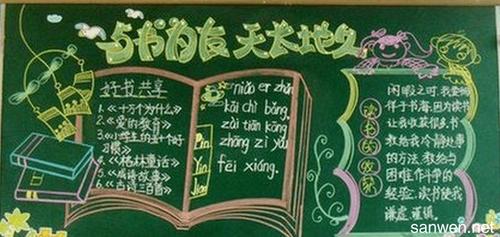 与书为友 天长地久
好书共享
1.《十万个为什么》
2.《爱的教育》
3.《小学生的十个好
习惯》
4.《格林童话》
5.《成语故事》
6.《古诗三百首》
niǎo er zhǎn
kāi chì bǎng,
zài tiān kōng
zhōng zì yóu
fēi xiáng.
Pin
Yin
读书的收获
闲暇之时,我爱徜
徉于书海,因为读书
让我收获很多.书
教给我冷静处事
的方法,教给与
困难作斗争的
经验.读书使我
谦虚谨慎.
sanwen.net